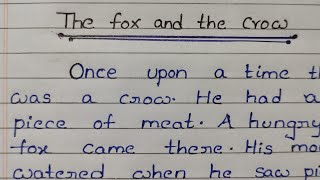 The fox and the crow
Once upon a time th
was a crow. He had a
piece of meat. A hungry
fox came there. His mo
watered when he saw pi